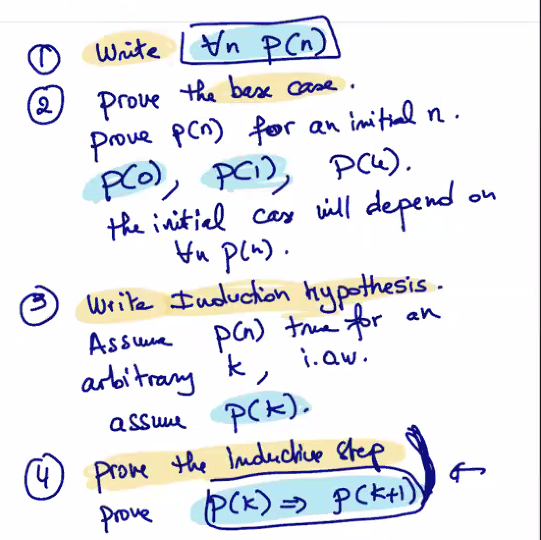 ① Write ∀n P(n)
② Prove the base case.
Prove P(n) for an initial n.
P(0), P(1), P(4).
the initial case will depend on
∀n P(n).
③ Write Induction hypothesis.
Assume P(n) true for an
arbitrary k, i.o.w.
assume P(k).
④ Prove the Inductive step
prove P(k) ⇒ P(k+1) ←